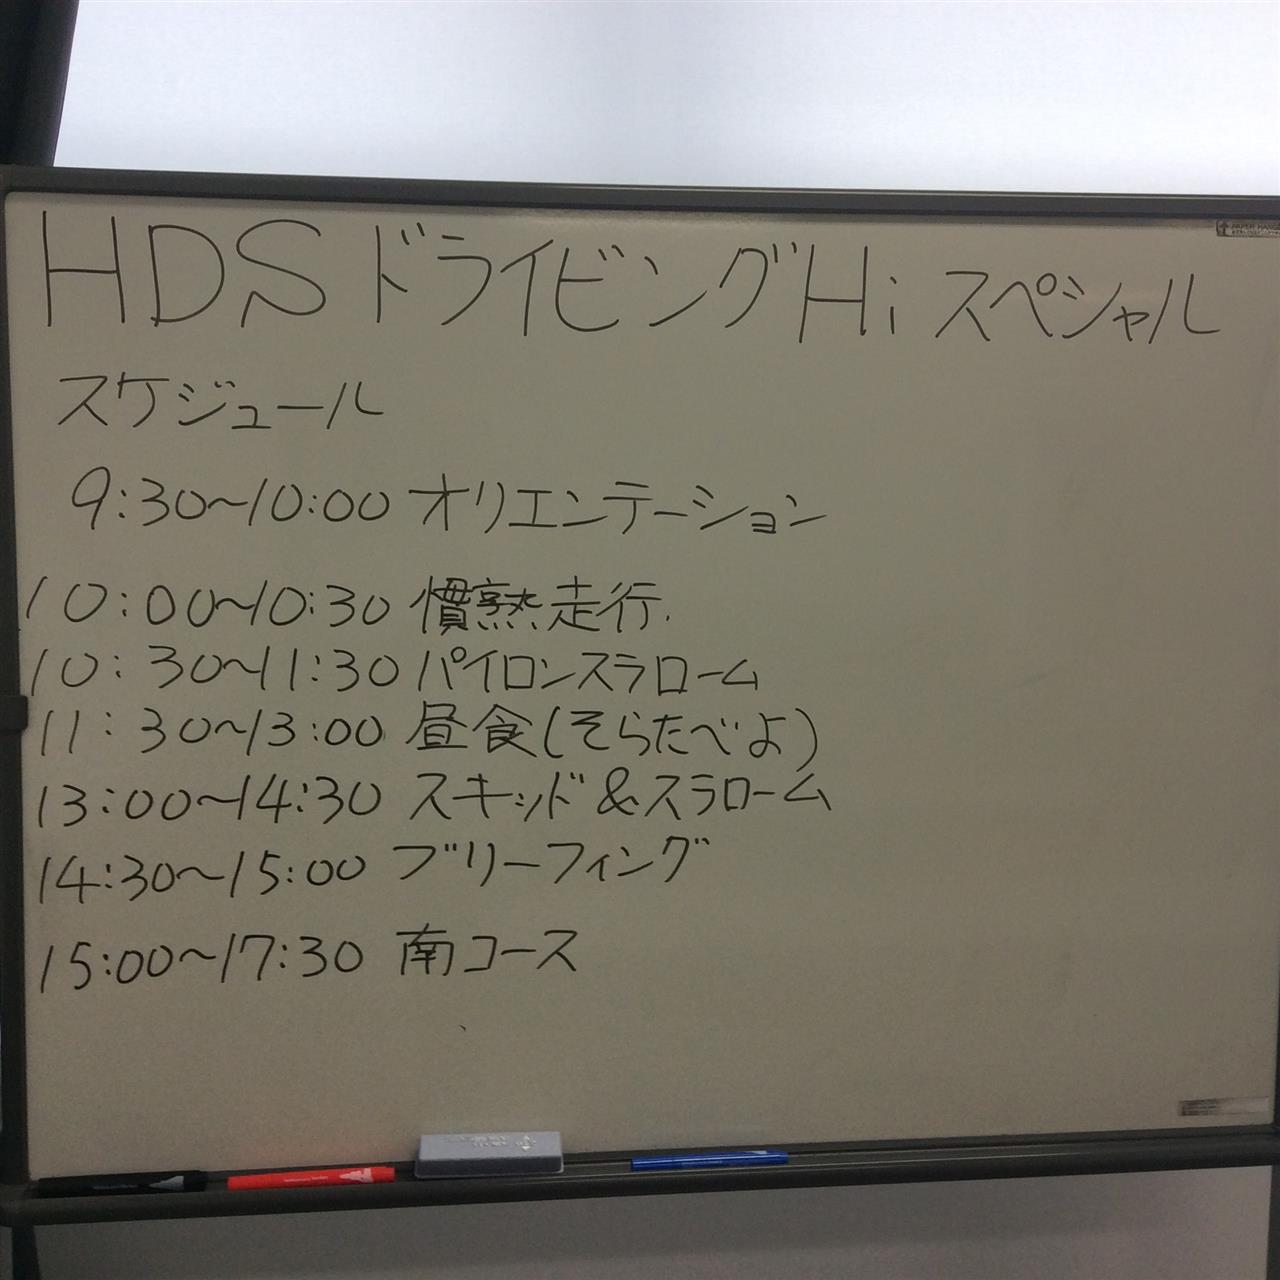 HDSドライビングHiスペシャル
スケジュール
9:30~10:00 オリエンテーション
10:00~10:30 慣熟走行
10:30~11:30 パイロンスラローム
11:30~13:00 昼食(そらたべよ)
13:00~14:30 スキッド&スラローム
14:30~15:00 ブリーフィング
15:00~17:30 南コース